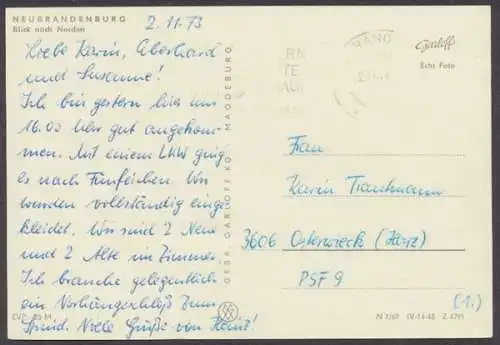 NEUBRANDENBURG
Blick nach Norden
2.11.73
Liebe Karin, Eberhard
und Susanne!
Ich bin gestern hier um
16.03 Uhr gut angekom-
men. Mit einem LKW ging
es nach Fünfeichen. Wir
wurden vollständig einge-
kleidet. Wir sind 2 Neue
und 2 Alte im Zimmer.
Ich brauche gelegentlich
ein Vorhängeschloß zum
Spind. Viele Grüße von Heinz!
EVP
M
GEBR. GARLOFF KG MAGDEBURG
Garloff
Echt Foto
Frau
Karin Trautmann
3606 Osterwieck (Harz)
PSF 9
(1.)
IV-14-48 Z 4791